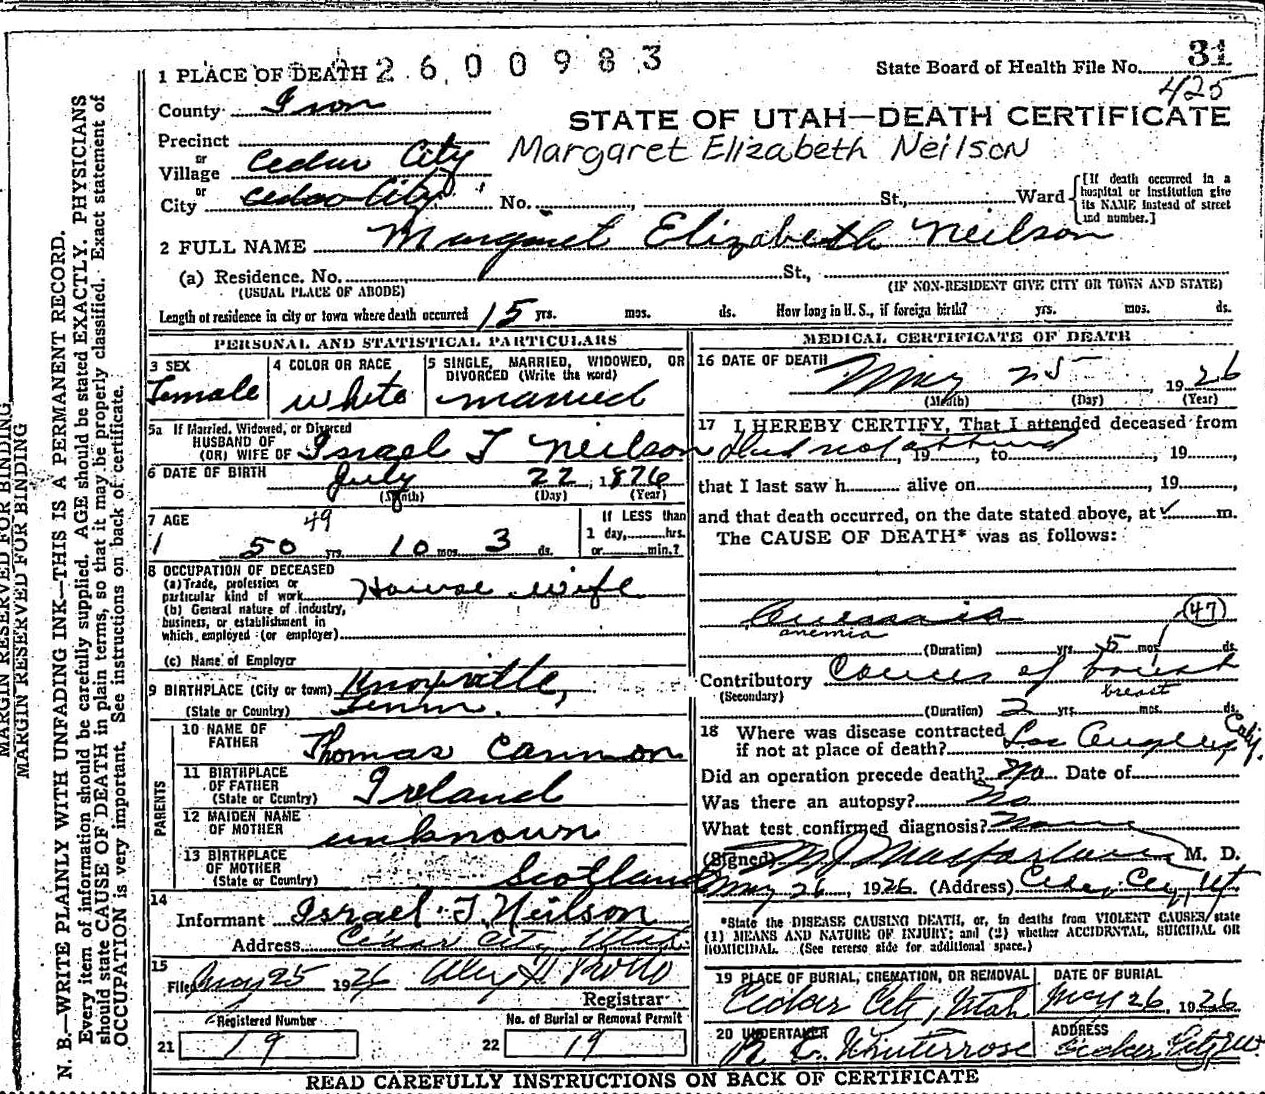 1 PLACE OF DEATH 2600983
State Board of Health File No. 31
425
County Iron
STATE OF UTAH—DEATH CERTIFICATE
Precinct
Margaret Elizabeth Neilson
or
Village Cedar City
or
City Cedar City No. St., Ward
[If death occurred in a hospital or institution give its NAME instead of street and number.]
2 FULL NAME Margaret Elizabeth Neilson
(a) Residence. No. St.,
(USUAL PLACE OF ABODE) (IF NON-RESIDENT GIVE CITY OR TOWN AND STATE)
Length of residence in city or town where death occurred 15 yrs. mos. ds. How long in U. S., if foreign birth? yrs. mos. ds.
PERSONAL AND STATISTICAL PARTICULARS
3 SEX Female
4 COLOR OR RACE White
5 SINGLE, MARRIED, WIDOWED, OR DIVORCED (Write the word) married
5a If Married, Widowed, or Divorced
HUSBAND OF
(OR) WIFE OF Israel T Neilson
6 DATE OF BIRTH July 22, 1876
(Month) (Day) (Year)
7 AGE 49
50 yrs. 10 mos. 3 ds.
If LESS than
1 day, hrs.
or min.?
8 OCCUPATION OF DECEASED
(a) Trade, profession or
particular kind of work House wife
(b) General nature of industry,
business, or establishment in
which employed (or employer)
(c) Name of Employer
9 BIRTHPLACE (City or town) Knoxville,
(State or Country) Tenn.
PARENTS
10 NAME OF FATHER Thomas Cannon
11 BIRTHPLACE OF FATHER (State or Country) Ireland
12 MAIDEN NAME OF MOTHER unknown
13 BIRTHPLACE OF MOTHER (State or Country) Scotland
14
Informant Israel T. Neilson
Address Cedar City Utah.
15
Filed May 25 1926
Registrar
Registered Number
21 19
No. of Burial or Removal Permit
22 19
MEDICAL CERTIFICATE OF DEATH
16 DATE OF DEATH May 25 1926
(Month) (Day) (Year)
17 I HEREBY CERTIFY, That I attended deceased from
Did not attend, 19, to, 19,
that I last saw h alive on, 19,
and that death occurred, on the date stated above, at m.
The CAUSE OF DEATH* was as follows:
47
anemia
(Duration) yrs. 5 mos. ds.
Contributory Cancer of breast
(Secondary) breast
(Duration) 2 yrs. mos. ds.
18 Where was disease contracted
if not at place of death? Los Angeles Calif.
Did an operation precede death? No Date of
Was there an autopsy? No
What test confirmed diagnosis? None
(Signed) M J Macfarlane M. D.
May 26, 1926 (Address) Cedar City, Ut
*State the DISEASE CAUSING DEATH, or, in deaths from VIOLENT CAUSES, state
(1) MEANS AND NATURE OF INJURY; and (2) whether ACCIDENTAL, SUICIDAL OR
HOMICIDAL. (See reverse side for additional space.)
19 PLACE OF BURIAL, CREMATION, OR REMOVAL
Cedar City, Utah
DATE OF BURIAL
May 26, 1926
20 UNDERTAKER
ADDRESS
Cedar City
READ CAREFULLY INSTRUCTIONS ON BACK OF CERTIFICATE
MARGIN RESERVED FOR BINDING
MARGIN RESERVED FOR BINDING
N. B.—WRITE PLAINLY WITH UNFADING INK—THIS IS A PERMANENT RECORD.
Every item of information should be carefully supplied. AGE should be stated EXACTLY. PHYSICIANS
should state CAUSE OF DEATH in plain terms, so that it may be properly classified. Exact statement of
OCCUPATION is very important. See instructions on back of certificate.